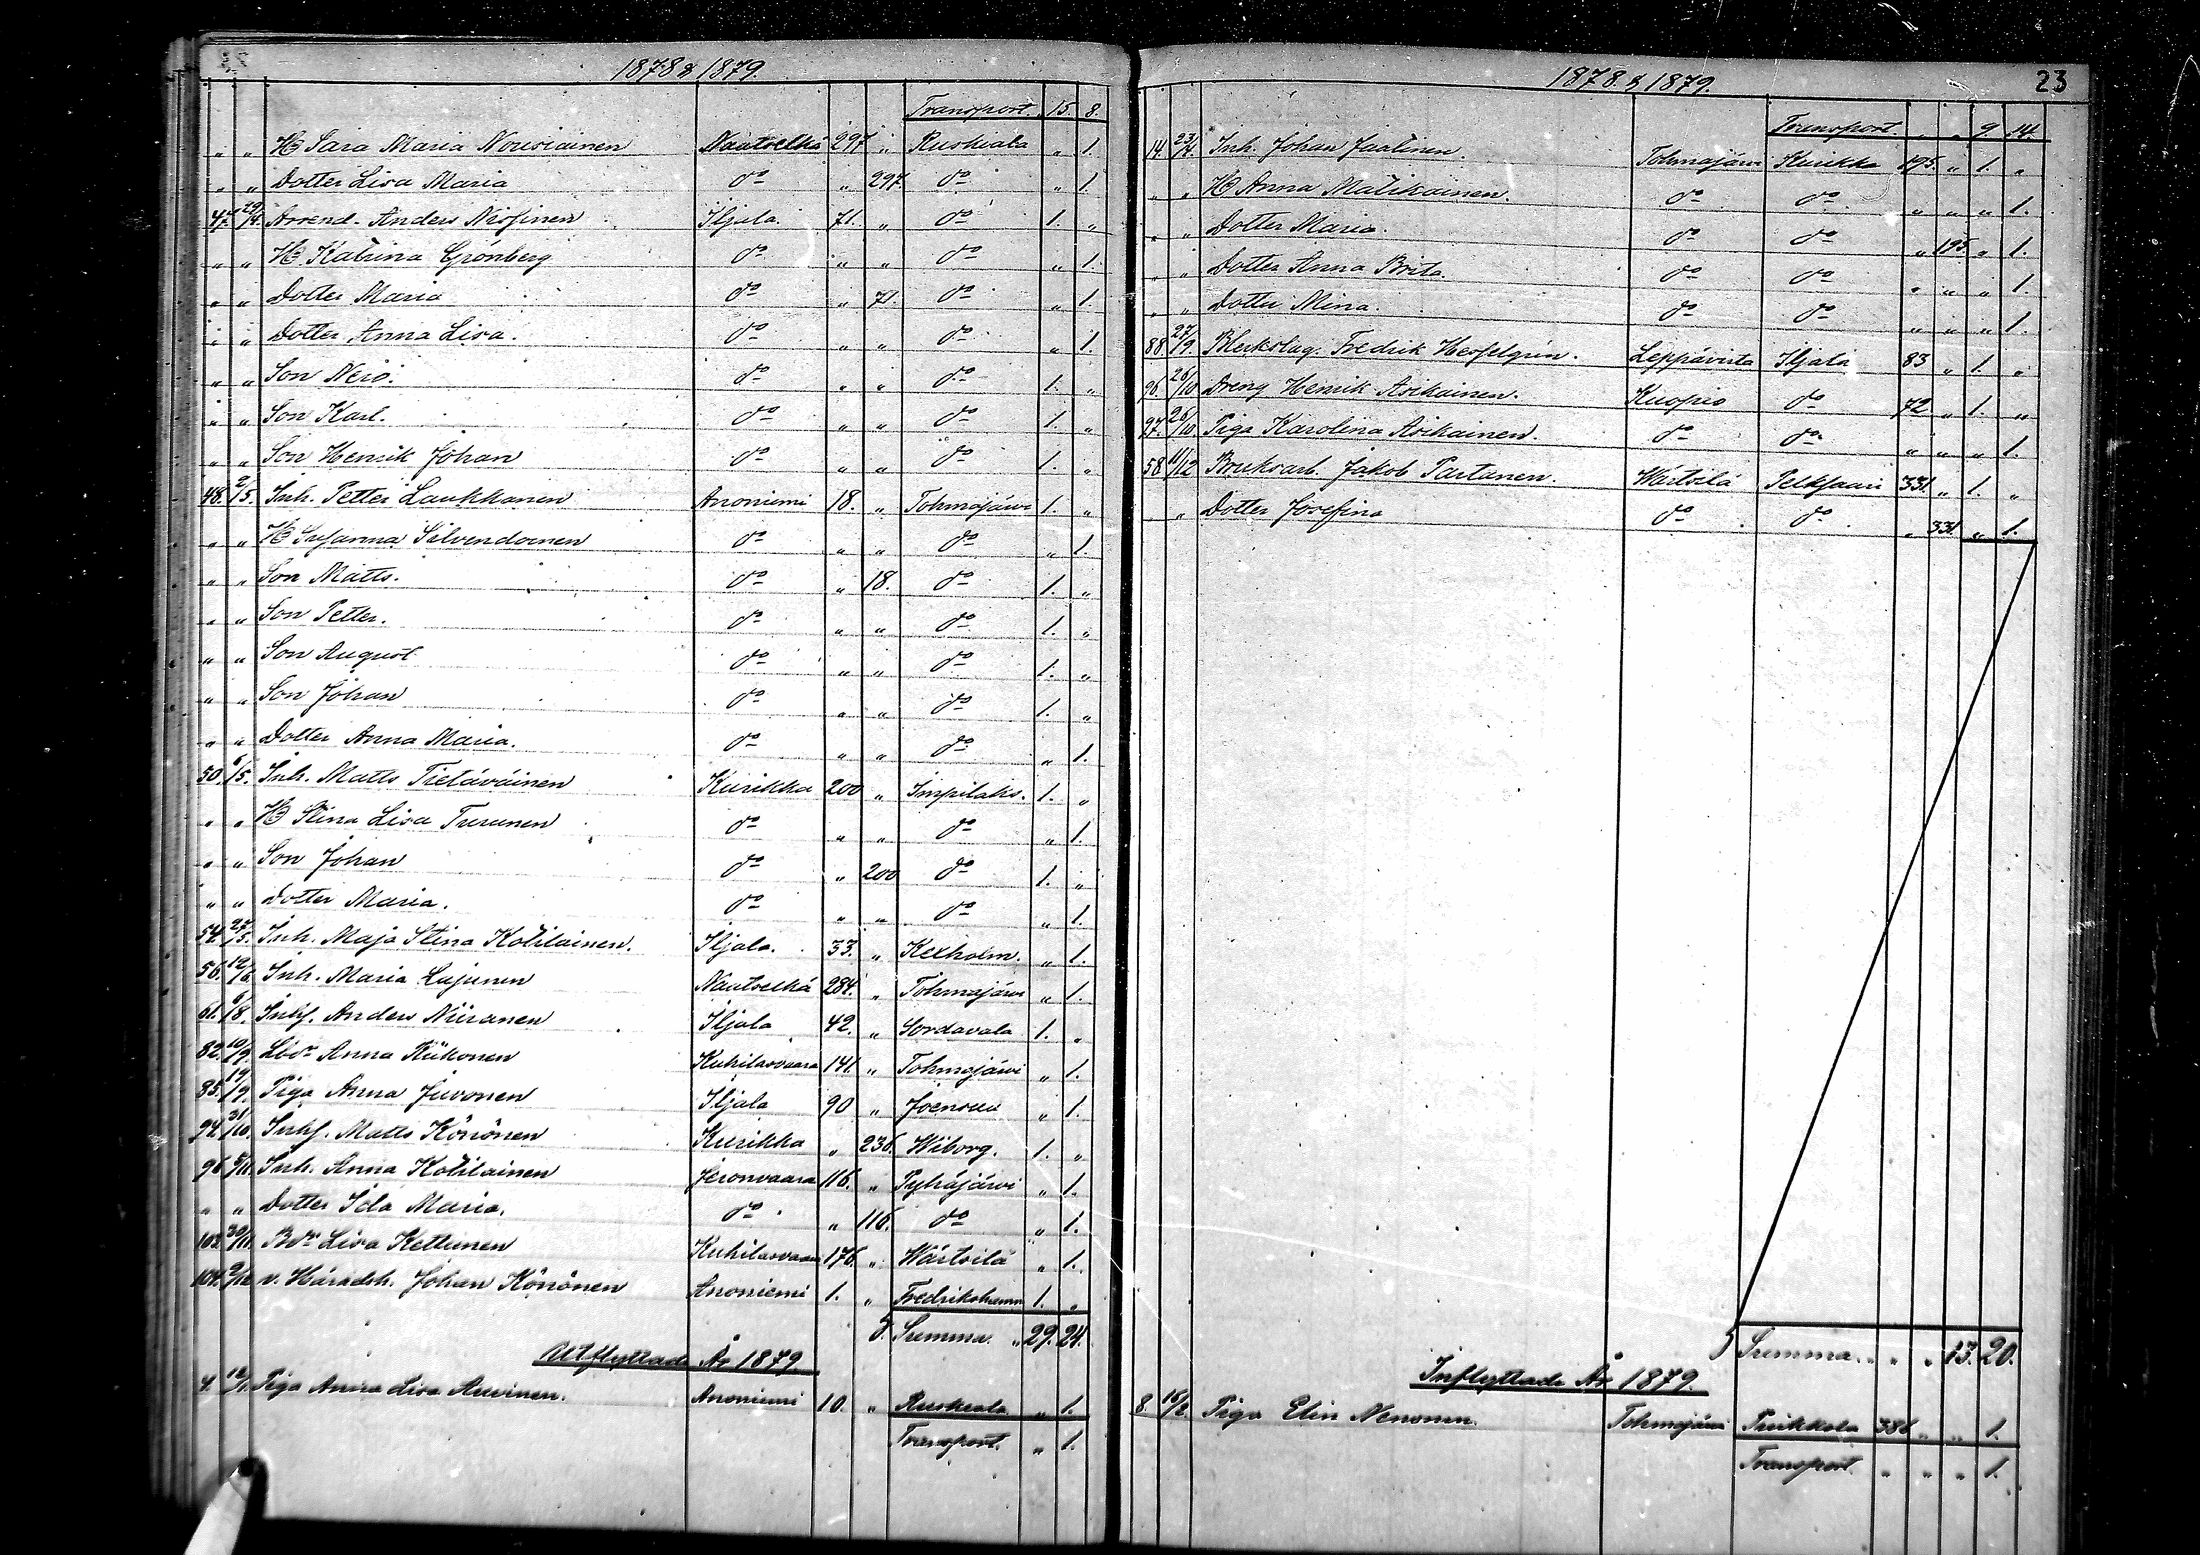 1878 & 1879.
Transport. 15. 8.
" " H Sara Maria Nousiainen Naatselkä 297 " Ruskiala " 1.
" " Dotter Lisa Maria do " 297. do " 1.
47. 29/4. Arrend. Anders Nissinen Iljala 71. " do 1. "
" " H Katrina Grönberg do " " do " 1.
" " Dotter Maria do " 71. do " 1.
" " Dotter Anna Lisa. do " " do " 1.
" " Son do " " do 1. "
" " Son Karl. do " " do 1. "
" " Son Henrik Johan do " " do 1. "
48. 2/5. Inh. Petter Laukkanen Anoniemi 18. " Tohmajärvi 1. "
" " H Susanna Silvendoinen do " " do " 1.
" " Son Matts. do " 18. do 1. "
" " Son Petter. do " " do 1. "
" " Son August do " " do 1. "
" " Son Johan do " " do 1. "
" " Dotter Anna Maria. do " " do " 1.
50. 6/5. Inh. Matts Tietäväinen Kurikka 200 " Impilaks. 1. "
" " H Stina Lisa Turunen do " " do " 1.
" " Son Johan do " 200 do 1. "
" " Dotter Maria. do " " do " 1.
54. 27/5. Inh. Maja Stina Kotilainen. Iljala. 33. " Kexholm. " 1.
56. 12/6. Inh. Maria Lujunen Naatselkä 284. " Tohmajärvi " 1.
61. 6/8. Inhs. Anders Niiranen Iljala 42. " Sordavala 1. "
82. 10/9. Anna Kükonen Kuhilasvaara 141. " Tohmajärvi " 1.
85. 19/9. Piga Anna Juvonen Iljala 90 " Joensuu " 1.
94. 31/10. Inhs. Matts Könönen Kurikka " 236. Wiborg. 1. "
96. 5/11. Inh. Anna Kotilainen Jeronvaara 116. " Pyhäjärvi " 1.
" " Dotter Ida Maria. do " 116. do " 1.
102. 30/11. Lisa Kettunen Kuhilasvaara 176. " Wärtsilä " 1.
104. 9/12 v. Häradsh. Johan Könönen Anoniemi 1. " Fredrikshamn 1. "
S. Summa. " 29. 24.
Utflyttade År 1879
4. 12/1. Piga Anna Lisa Auvinen. Anoniemi 10. " Ruskeala " 1.
Transport. " 1.
1878. & 1879. 23
Transport. " " 9. 14.
14. 23/4. Inh. Johan Jaatinen. Tohmajärvi Kurikka 195. " 1. "
" " H Anna Matikainen. do do " " " 1.
" " Dotter Maria. do do " 195. " 1.
" " Dotter Anna Brita. do do " " " 1.
" " Dotter Mina. do do " " " 1.
88 27/9. Bleckslag. Fredrik Hesselgren. Leppävirta Iljala 83 " 1. "
96. 26/10 Dreng Henrik Asikainen. Kuopio do 72 " 1. "
97. 26/10. Piga Karolina Asikainen. do do " " " 1.
58 11/12 Bruksarb. Jakob Partanen. Wärtsilä Pelkjaari 331. " 1. "
" Dotter Josefina do do " 331. " 1.
S Summa. " " " 13. 20.
Inflyttade År 1879.
8. 16/2. Piga Elin Nenonen. Tohmajärvi Puikkola 381. " " 1.
Transport. " " " 1.